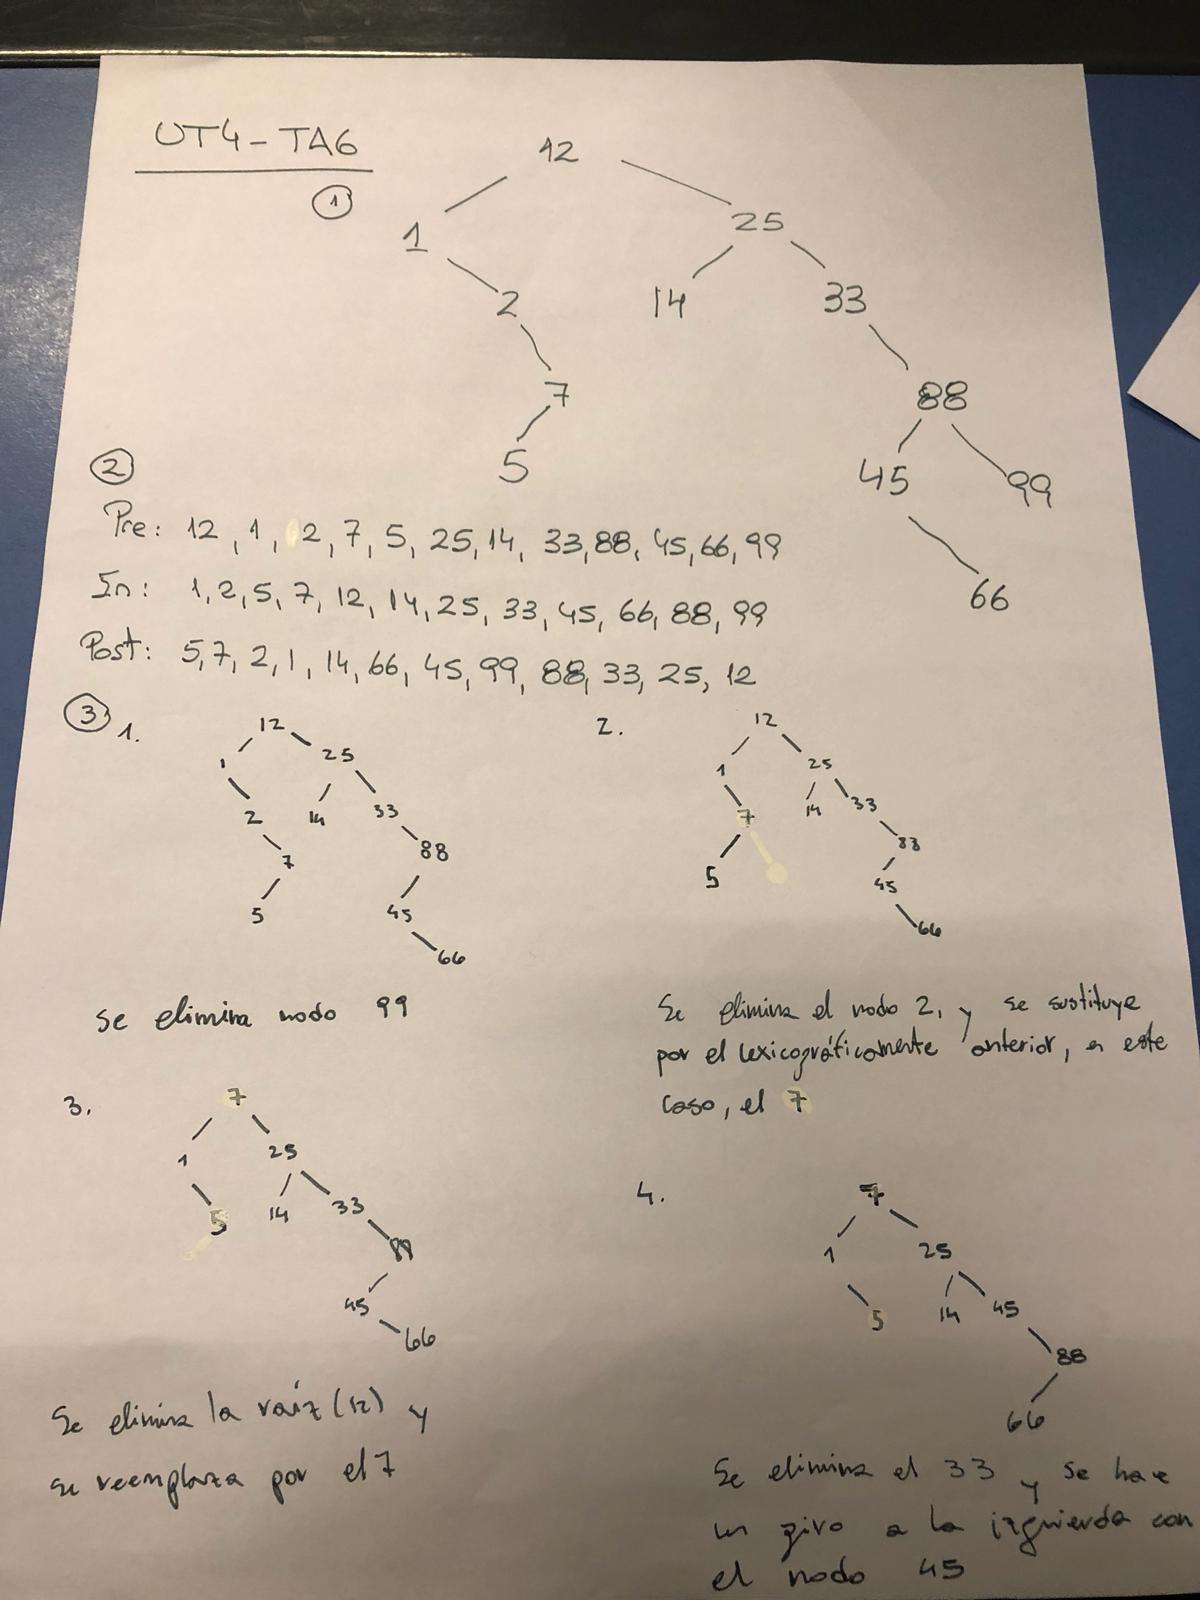 UT4-TA6
1
12
1 25
2 14 33
7 88
5 45 99
66
2
Pre: 12, 1, 2, 7, 5, 25, 14, 33, 88, 45, 66, 99
In: 1, 2, 5, 7, 12, 14, 25, 33, 45, 66, 88, 99
Post: 5, 7, 2, 1, 14, 66, 45, 99, 88, 33, 25, 12
3
1.
12
1 25
2 14 33
7 88
5 45
66
Se elimina nodo 99
2.
12
1 25
7 14 33
88
5 45
66
Se elimina el nodo 2, y se sustituye
por el lexicográficamente anterior, en este
caso, el 7
3.
7
1 25
5 14 33
88
45
66
Se elimina la raíz (12) y
se reemplaza por el 7
4.
7
1 25
5 14 45
88
66
Se elimina el 33 y se hace
un giro a la izquierda con
el nodo 45